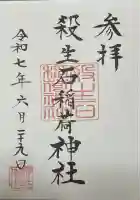 参拝
殺生石稲荷神社
令和七年六月二十九日